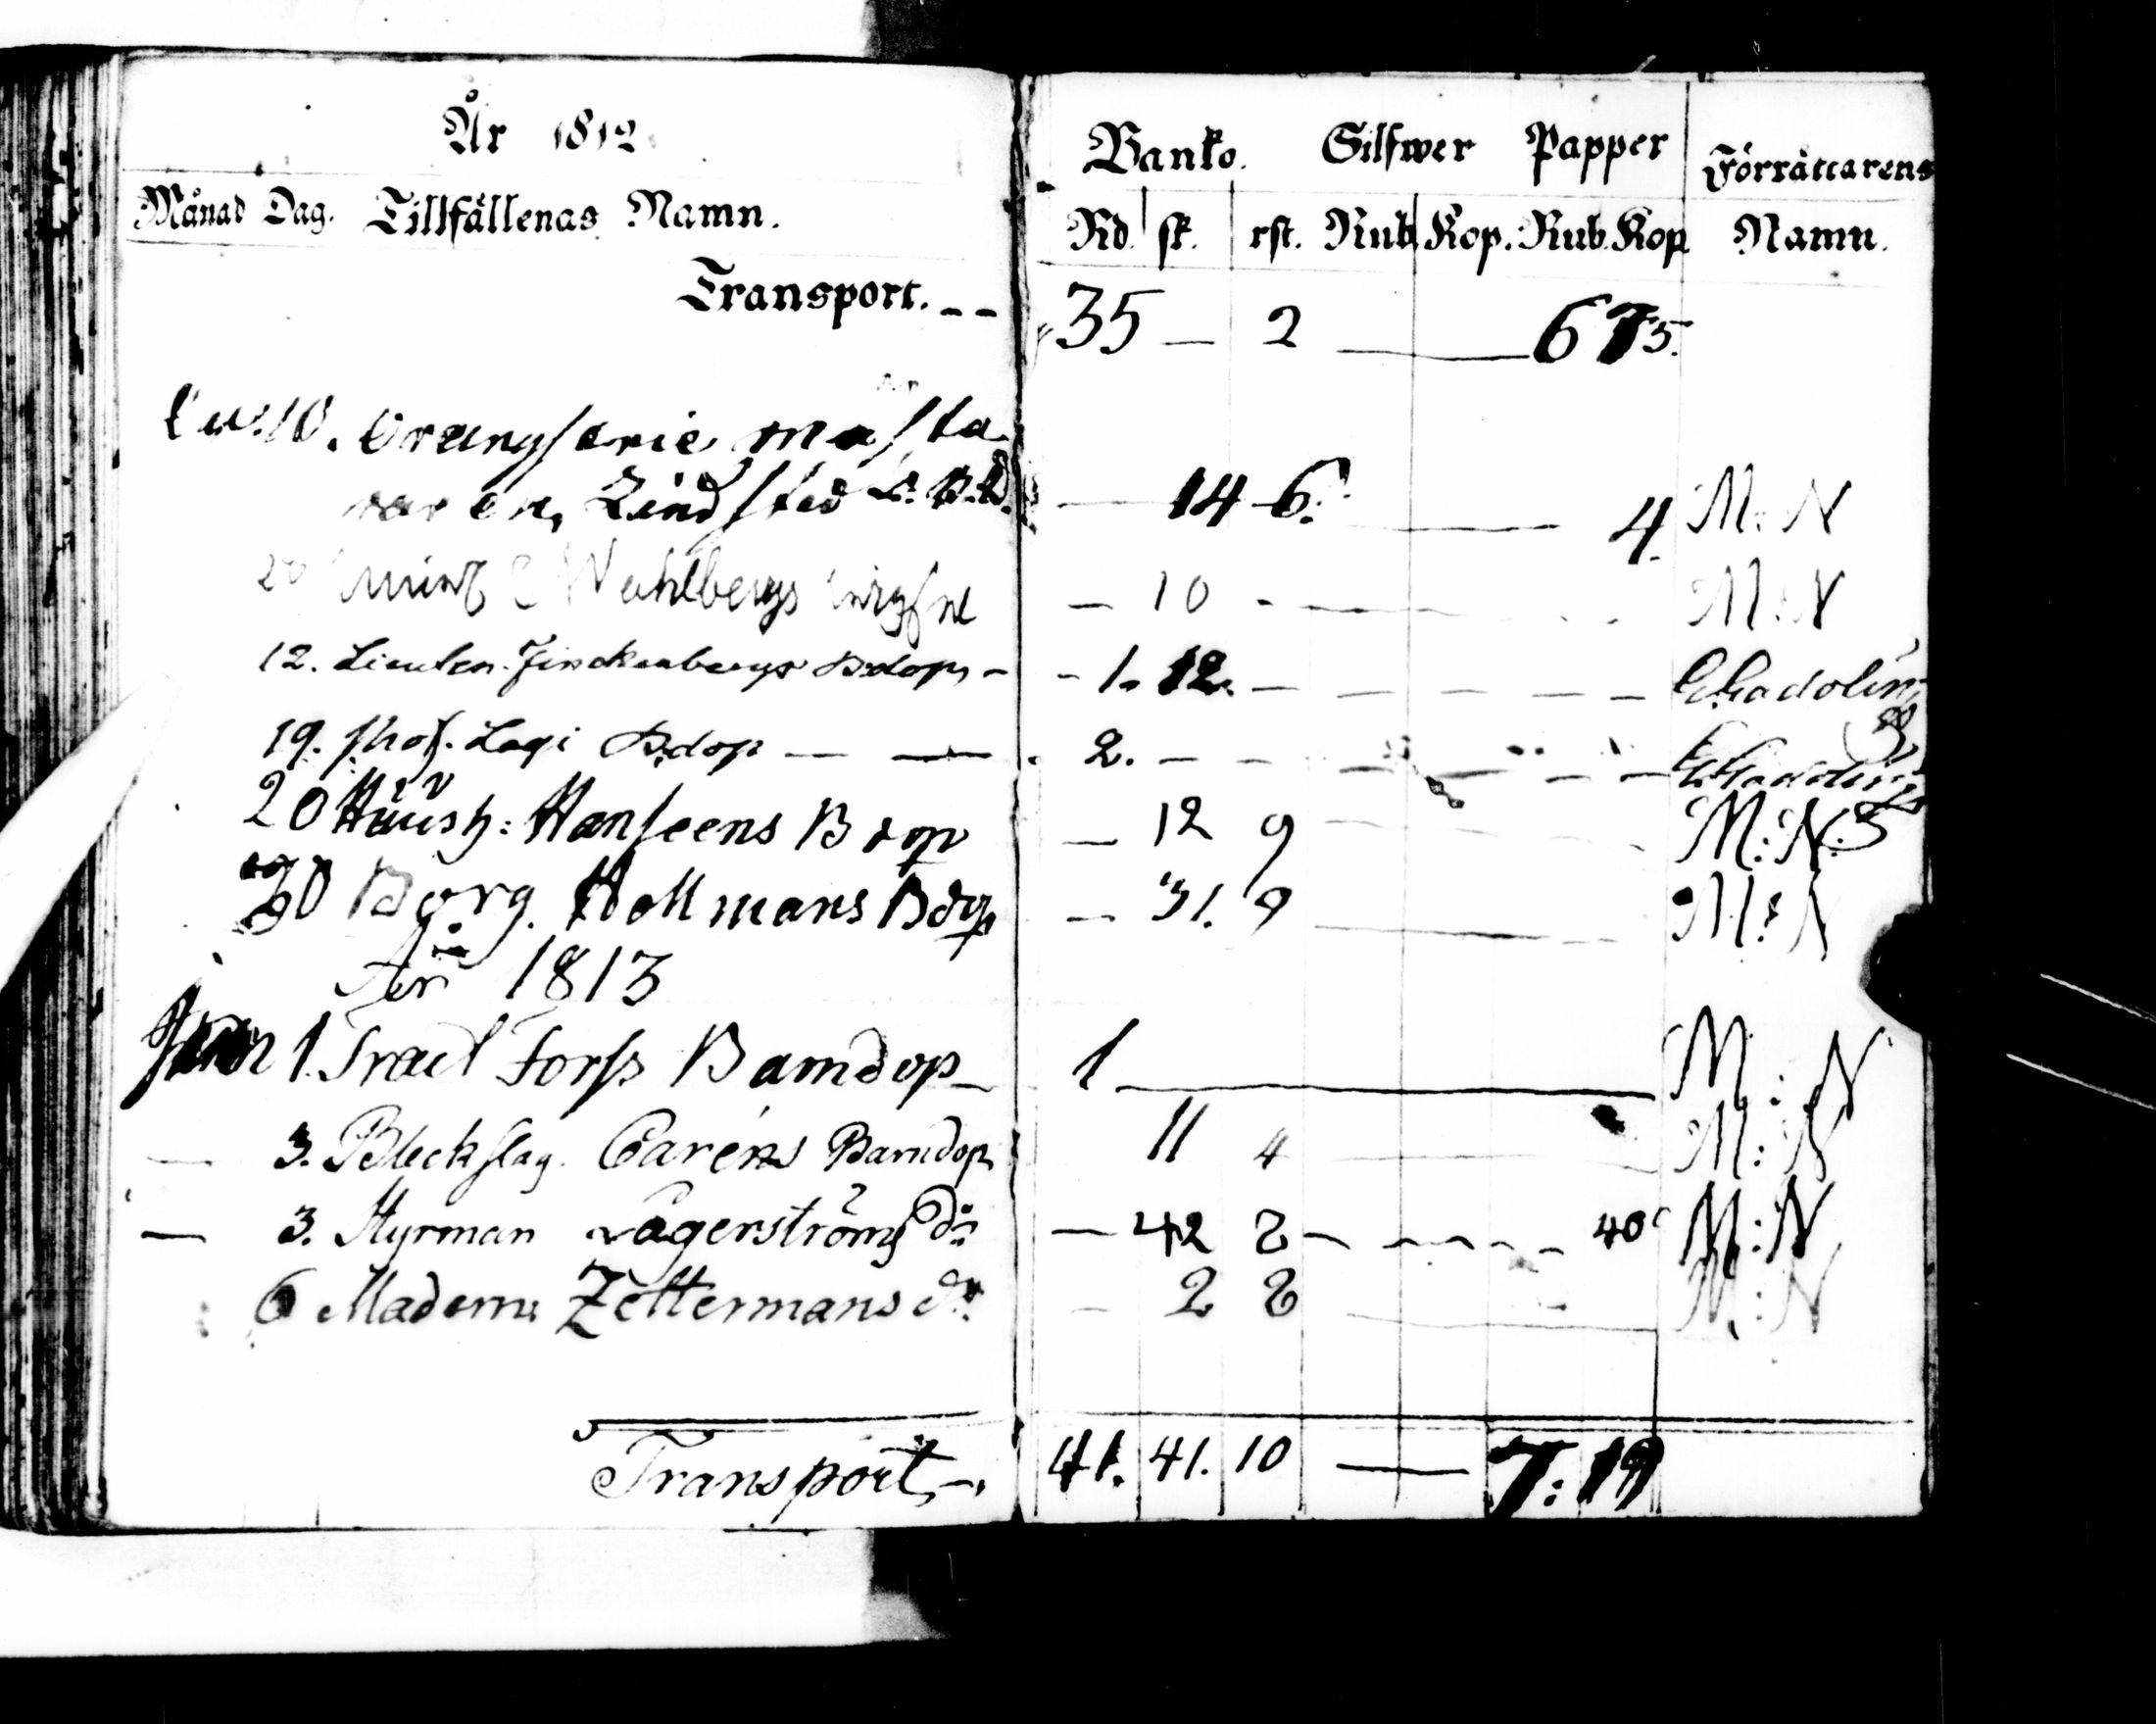 År 1812
Banko. Silfwer Papper Förrättarens
Månad Dag. Tillfällenas Namn.
Rd. sk. rst. Rub Kop. Rub. Kop Namn.
Transport. -- 35 — 2 — 6 75.
10. Orangerie mästa
ren Lindsted — 14 6. — 4. M: N
Wahlbergs — 10 - — M: N
12. Lieuten. Finckenbergs Bdop, - - 1. 12. — Gadolin
19. Prof. Lagi Bdop — — 2. — Gadolin
20 Hanseens Bdop — 12 9 M: N:
30 Borg. Hellmans Bdop — 31. 9 — M: N
År 1813
Jan 1. Israel Forss Barndop — 1 — M: N
— 3. Bleckslag. Carens Barndop 11 4 — M: N
— 3. Styrman Lagerströms do — 42 8 - - - - 40 M: N
6 Madame Zettermans do — 2 8 — M: N
Transport —. 41. 41. 10 — 7: 19